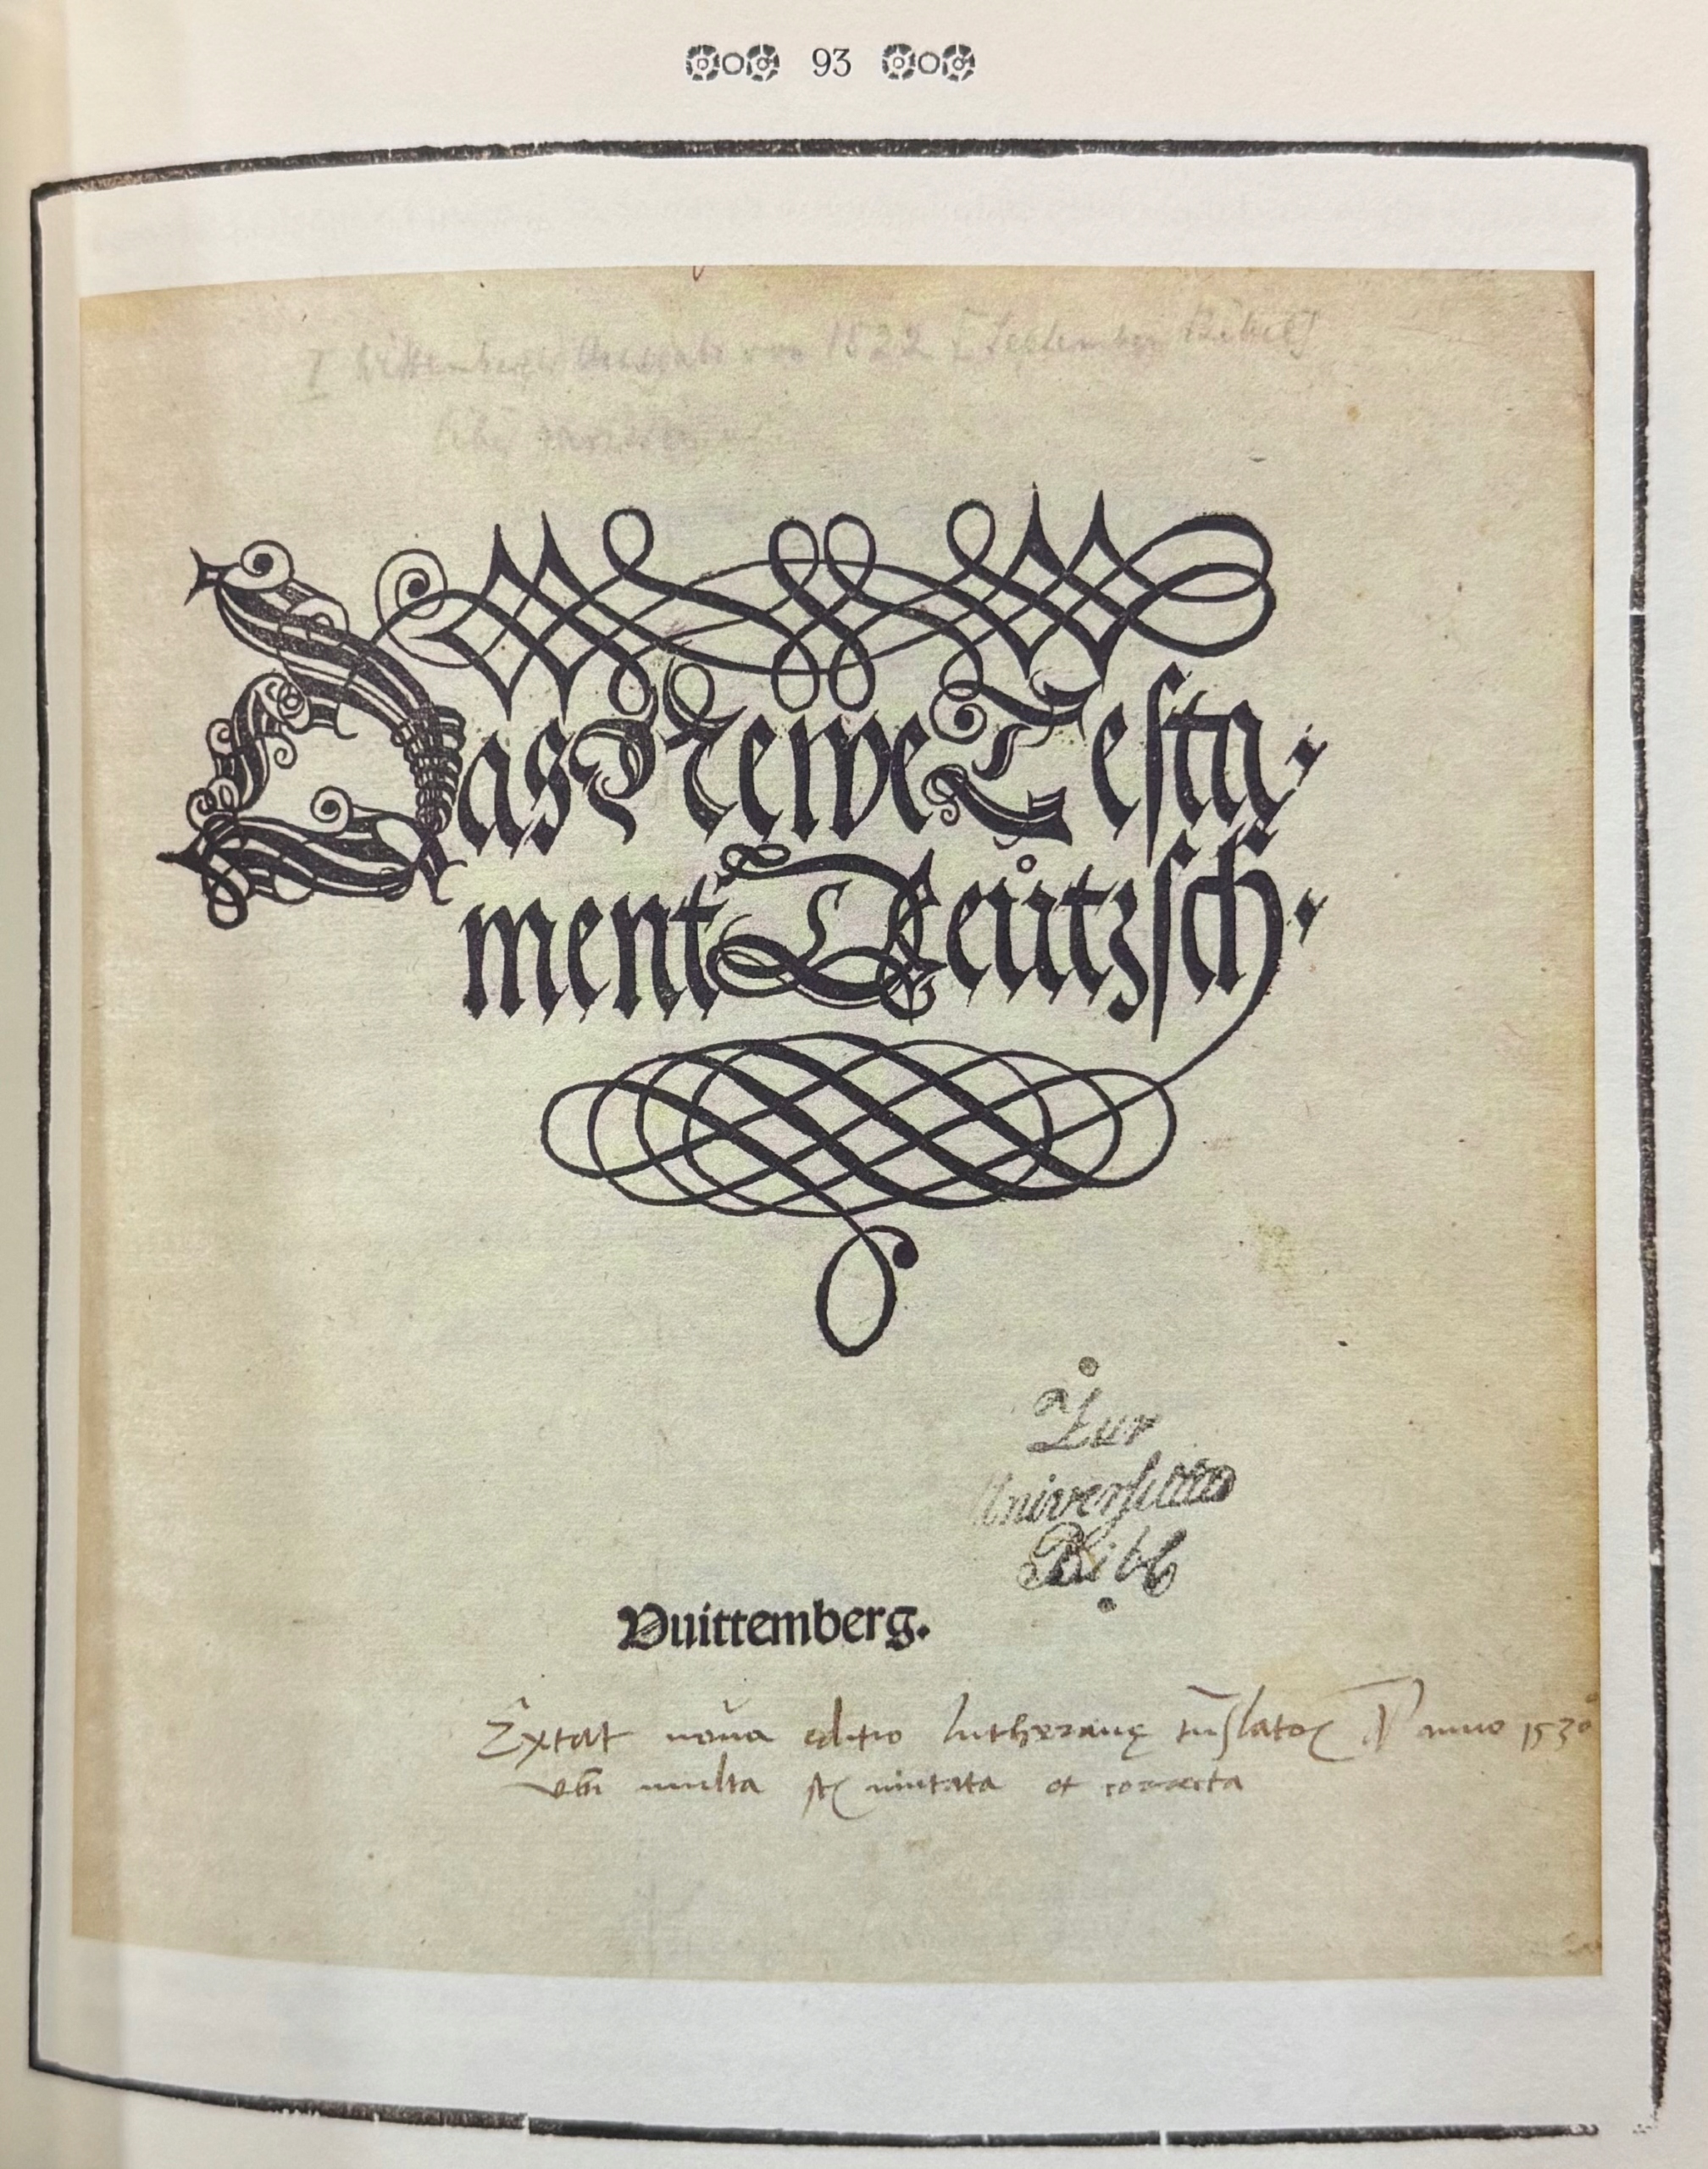 93
I Wittenberger Ausgabe von 1522 [September Bibel]
Das Newe Testa-
ment Deůtzsch.
Zur
Universitäts
Bibl
Vuittemberg.
Extat noua editio lutheranę anno 1530
vbi multa st mutata et correcta